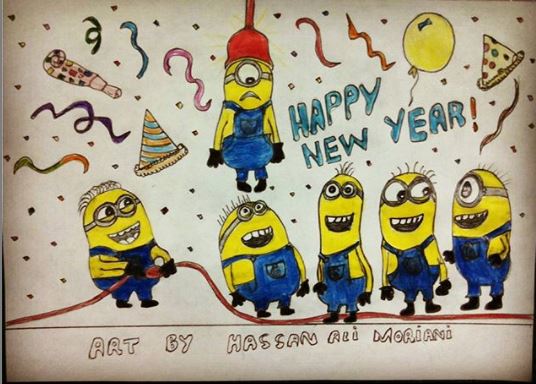 HAPPY
NEW YEAR!
ART BY HASSAN ALI MORIANI